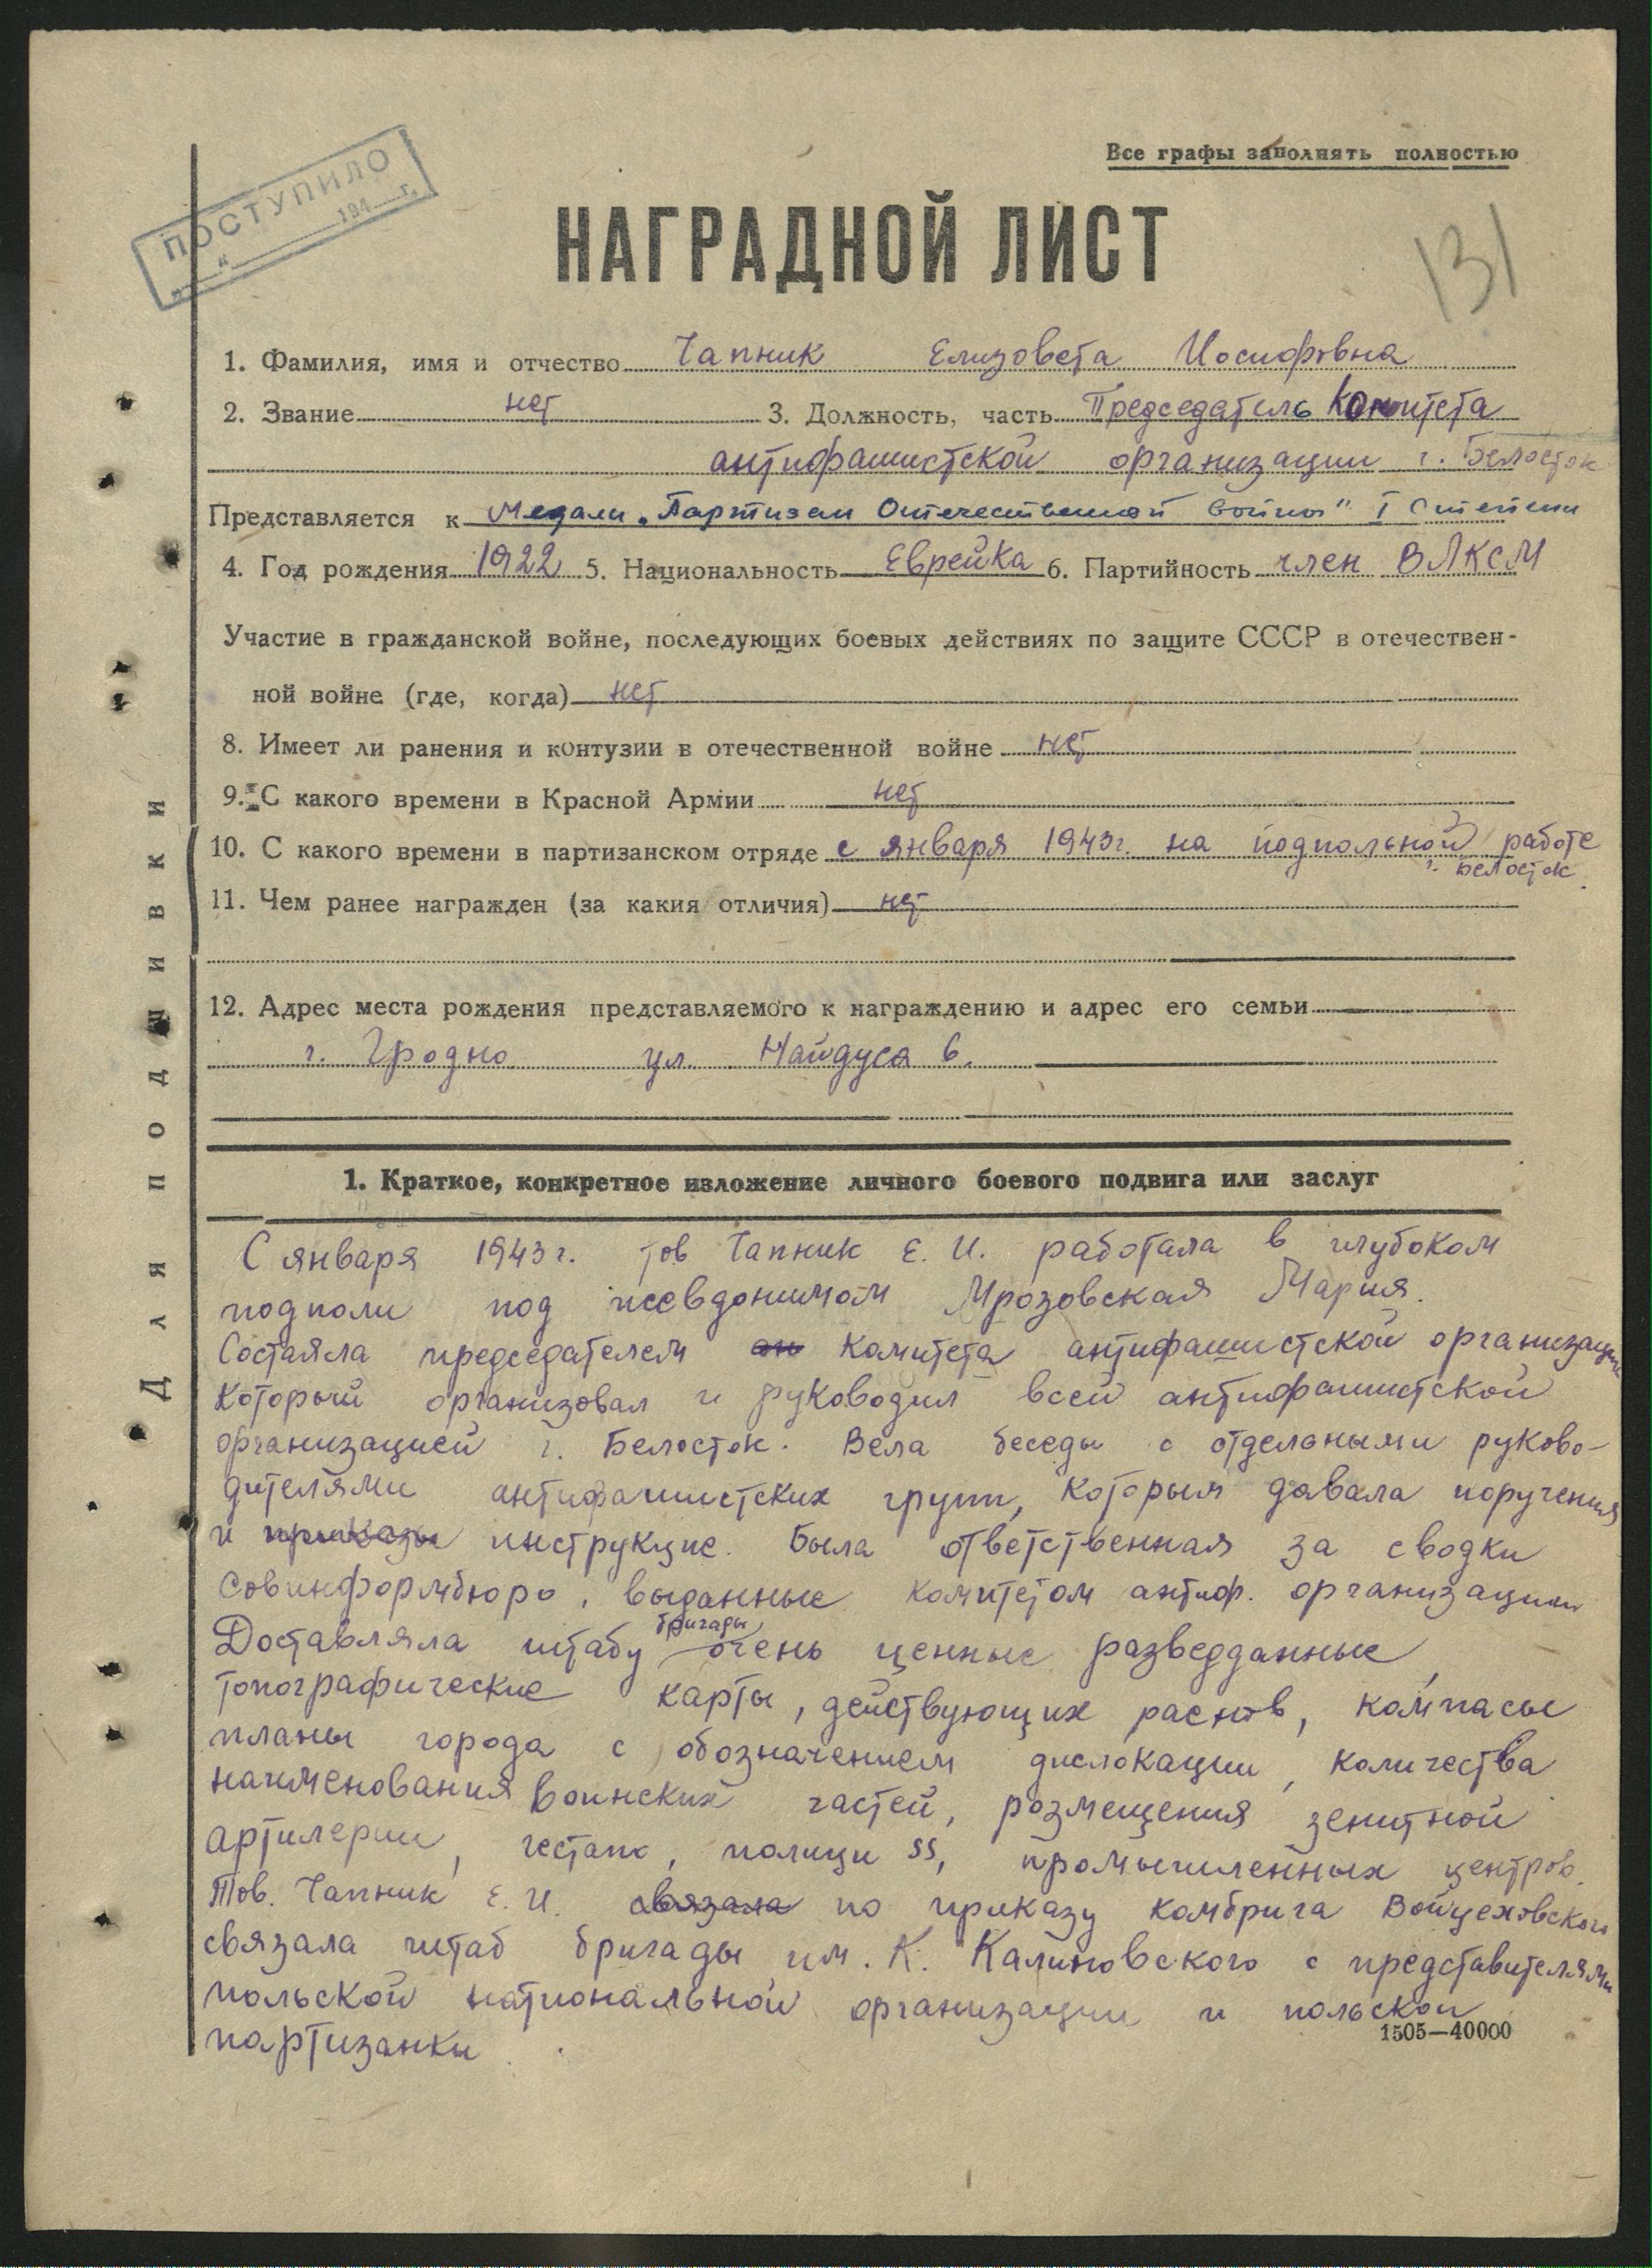 Все графы заполнять полностью
ПОСТУПИЛО
„ “ 194 г.
НАГРАДНОЙ ЛИСТ
131
1. Фамилия, имя и отчество Чапник Елизовета Иосифовна
2. Звание нет 3. Должность, часть Председатель Комитета
антифашистской организации г. Белосток
Представляется к медали „Партизан Отечественной войны" I степени
4. Год рождения 1922 5. Национальность Еврейка 6. Партийность член ВЛКСМ
Участие в гражданской войне, последующих боевых действиях по защите СССР в отечествен-
ной войне (где, когда) нет
8. Имеет ли ранения и контузии в отечественной войне нет
9. С какого времени в Красной Армии нет
10. С какого времени в партизанском отряде с января 1943г. на подпольной работе
г. Белосток.
11. Чем ранее награжден (за какия отличия) нет
12. Адрес места рождения представляемого к награждению и адрес его семьи
г. Гродно ул. Найдуса 6.
Для подшивки
1. Краткое, конкретное изложение личного боевого подвига или заслуг
С января 1943г. тов Чапник Е. И. работала в глубоком
подполи под псевдонимом Мрозовская Мария.
Состаяла председателем ан комитета антифашистской организации
который организовал и руководил всей антифашистской
организацией г. Белосток. Вела беседы с отдельными руково-
дителями антифашистских групп, которым давала поручения
и приказы инструкцие. Была ответственная за сводки
Совинформбюро, выданные комитетом антиф. организации
Доставляла штабу бригады очень ценные разведданные,
топографические карты, действующих раенов, компасы
планы города с обозначением дислокации, количества
наименования воинских частей, розмещения зенитной
артилерии, гестапо, полици SS, промышленных центров.
Тов. Чапник Е. И. связала по приказу комбрига Войцеховского
связала штаб бригады им. К. Калиновского с представителями
польской натиональной организации и польской
партизанки.
1505—40000